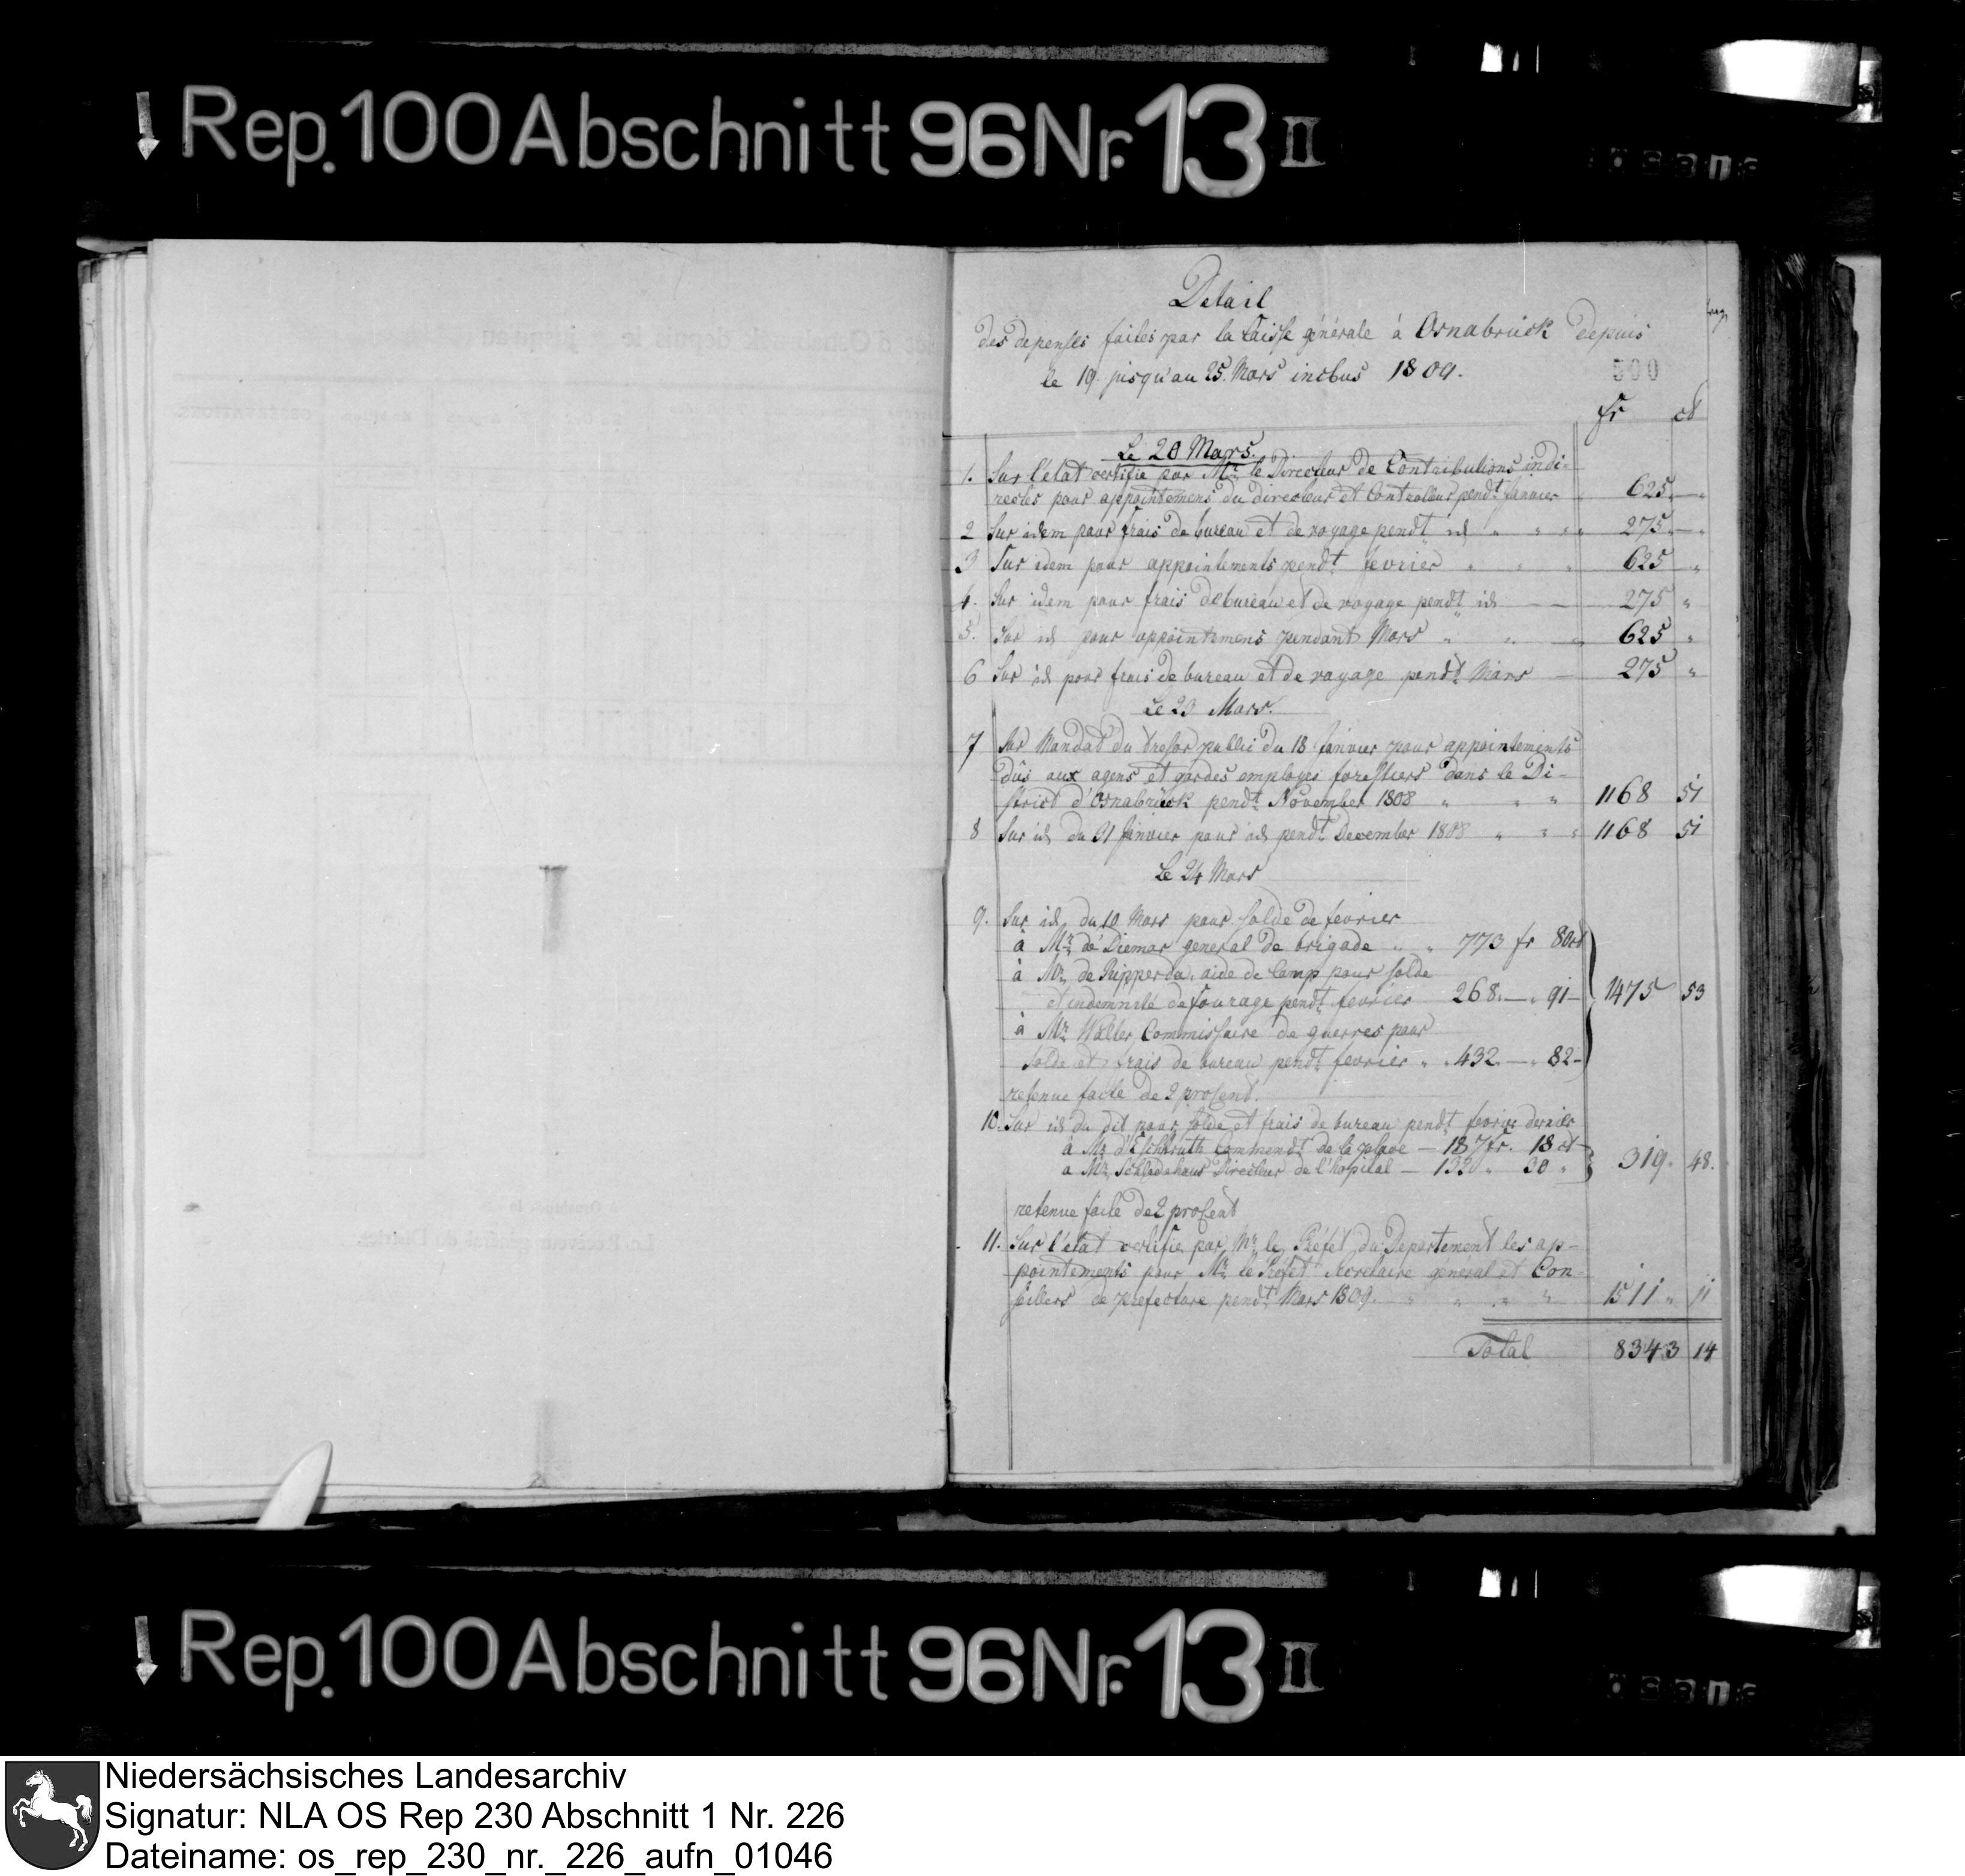 Rep. 100 Abschnitt 96 Nr. 13 II
Detail
des depenses faites par la Caisse générale à Osnabrück depuis
le 19. jusqu'au 25. Mars inclus 1809.
500
fr ct
Le 20 Mars.
1. Sur l'état certifie par Mr. le Directeur de Contributions indi-
rectes pour appointemens du directeur et Controlleur pendt. Janvier 625 -
2 Sur idem pour frais de bureau et de voyage pendt id " " " 275 -
3 Sur idem pour appointements pendt. fevrier " " " 625 "
4. Sur idem pour frais de bureau et de voyage pendt id — — 275 "
5. Sur id pour appointemens pendant Mars " " " 625 "
6 Sur id pour frais de bureau et de voyage pendt. Mars — 275 "
Le 23 Mars.
7 Sur Mandat du Tresor public du 18 Janvier pour appointements
dûs aux agens et gardes employes forestiers dans le Di-
strict d'Osnabrück pendt. November 1808 " " " 1168 51
8 Sur id du 21 Janvier pour id pendt. December 1808 " " " 1168 51
Le 24 Mars
9. Sur id, du 10 Mars pour solde de fevrier
à Mr. de Diemar general de brigade " " 773 fr 80 ct
à Mr. de Ripperda, aide de Camp pour solde
et indemnité de fourage pendt. fevrier 268. — " 91 — 1475 53
à Mr. Walter Commissaire de guerres pour
solde et frais de bureau pendt. fevrier " " 432 — " 82 -
retenue faite de 2 proCent.
10. Sur id du dit pour solde et frais de bureau pendt. fevrier dernier
à Mr. d'Eschstruth Commendt. de la place — 187 fr. 18 ct
a Mr. Schledehaus Directeur de l'hopital — 132 " 30 " 319. 48.
retenue faite de 2 proCent
11. Sur l'état certifie par Mr. le Préfet du Departement les ap-
pointements pour Mr. le Préfet Secretaire general et Con-
seillers de prefecture pendt. Mars 1809. " " " " 1511 " 11
Total 8343 14
Rep. 100 Abschnitt 96 Nr. 13 II
Niedersächsisches Landesarchiv
Signatur: NLA OS Rep 230 Abschnitt 1 Nr. 226
Dateiname: os_rep_230_nr._226_aufn_01046